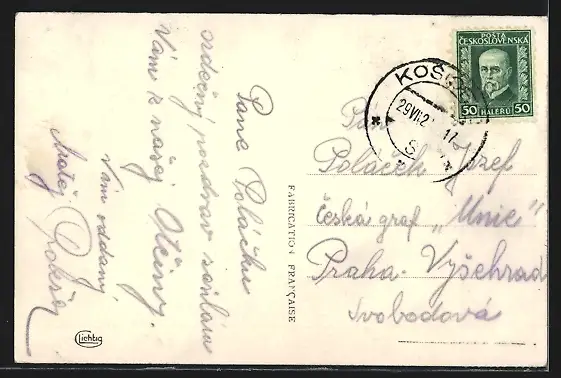 Pane Poláčku
srdečný pozdrav
Vám k našej
Vám oddaný
Matej
FABRICATION FRANÇAISE
Lichtig
POSTA
ČESKOSLOVENSKÁ
50 HALÉŘŮ 50
KOŠ
29 VII 2
17
Poláček Jozef
Česká graf „Unie"
Praha-Vyšehrad
Svobodová